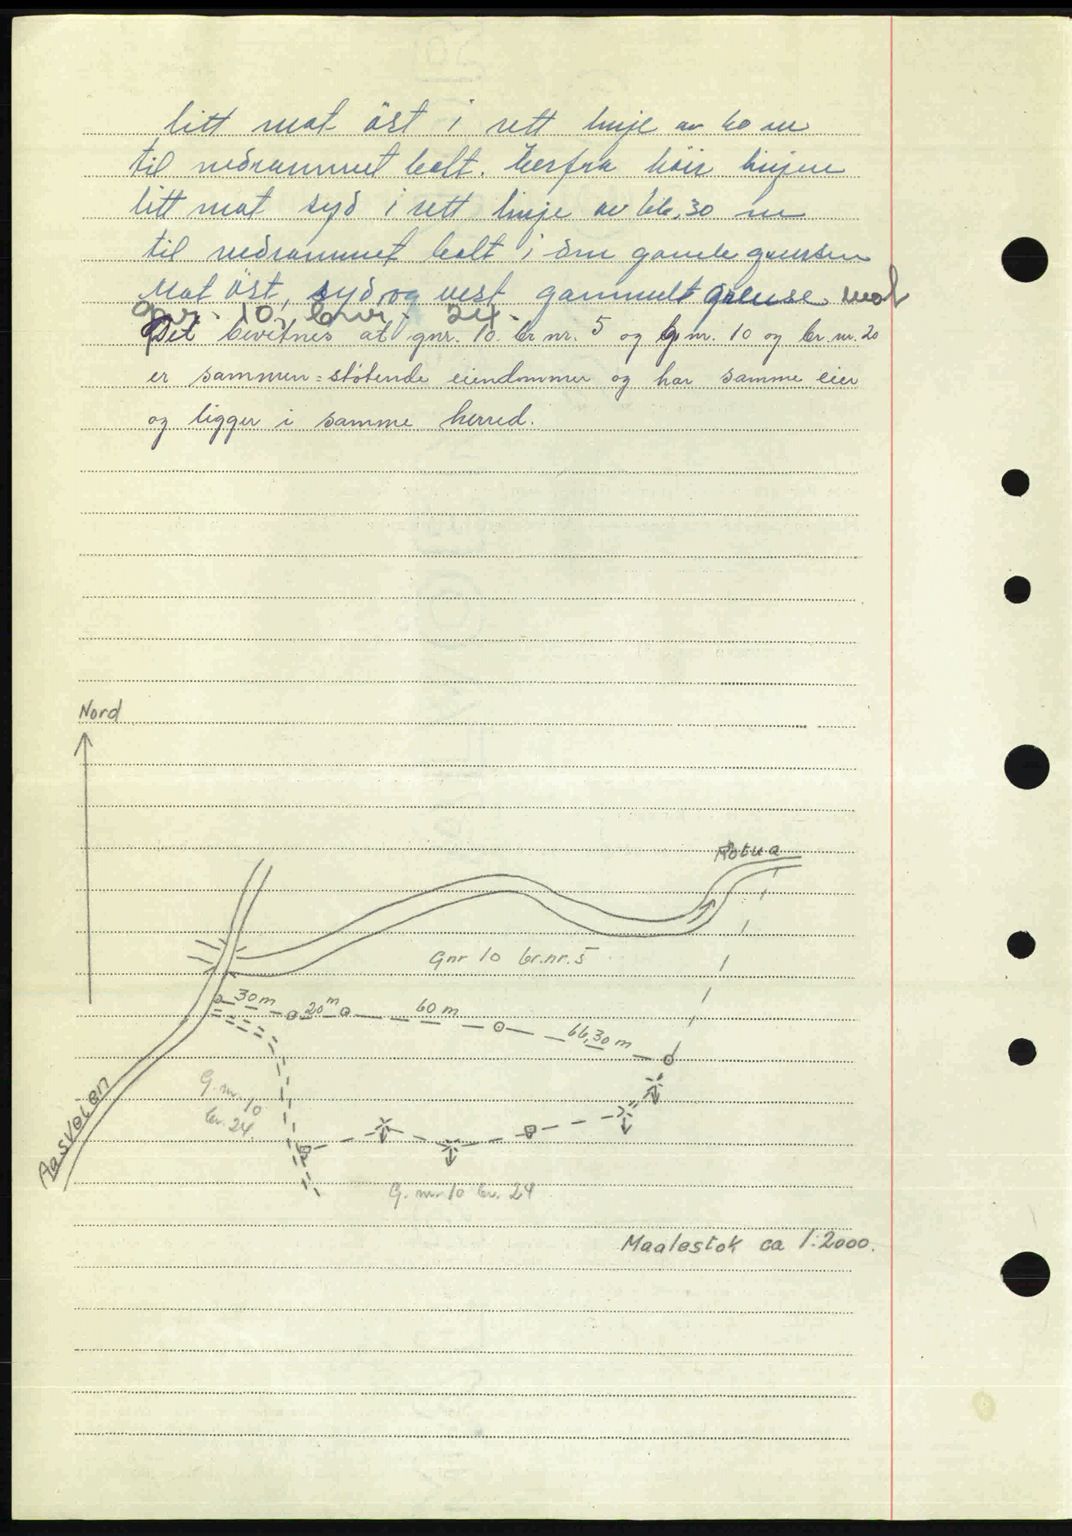 litt mot öst i rett linje av 60 m
til nedrammet bolt. Herfra linjen
litt mot syd i rett linje av 66,30 m
til nedrammet bolt i den gamle grensen
Mot öst, syd og vest gammelt grense mot
gnr. 10, bnr. 24.
Det bevitnes at gnr. 10. br.nr. 5 og gnr. 10 og br.nr. 20
er sammen=støtende eiendommer og har samme eier
og ligger i samme herred.
Nord
Rotua
Gnr 10 br.nr. 5
30 m 20 m 60 m 66,30 m
G. nr. 10
br. 24.
Aasveien
G. nr. 10 br. 24
Maalestok ca 1:2000.